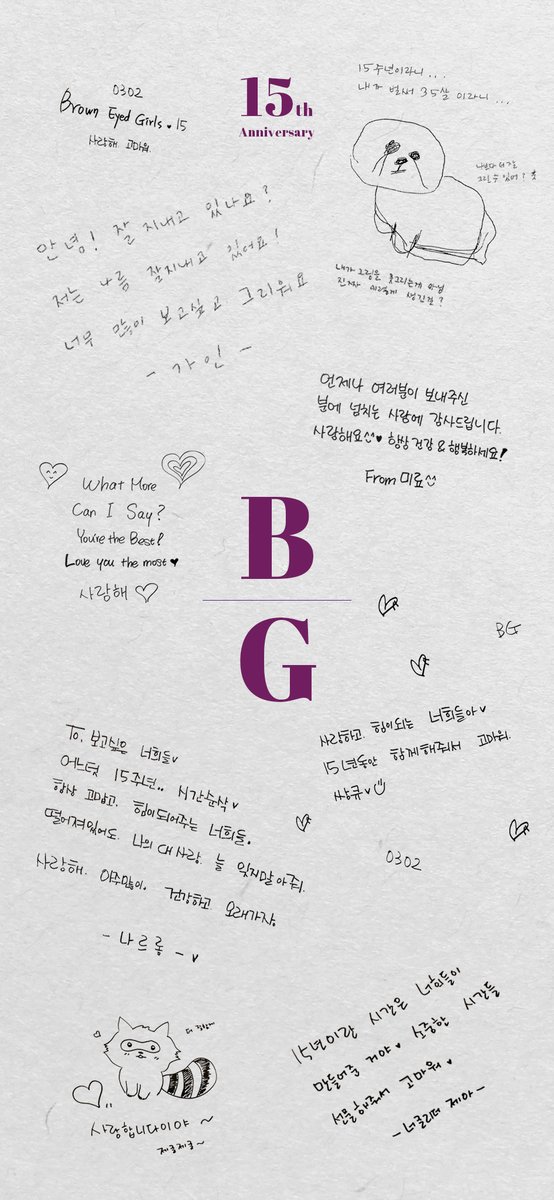 0302
Brown Eyed Girls ♥ 15
사랑해 고마워
15th
Anniversary
15주년이라니...
내가 벌써 35살 이라니...
그릴 수 있어?
안녕! 잘 지내고 있나요?
저는 나름 잘지내고 있어요!
너무 많이 보고싶고 그리워요
- 가인 -
내가 그림을 못그리는게 아님
진짜 이렇게 생긴걸?
언제나 여러분이 보내주신
분에 넘치는 사랑에 감사드립니다.
사랑해요^^♥ 항상 건강 & 행복하세요!
From 미료^^
What More
Can I Say?
You're the Best!
Love you the most ♥
사랑해 ♡
B
G
BG
사랑하고 힘이되는 너희들아♥
15년동안 함께해줘서 고마워.
쌍큐♥
0302
To. 보고싶은 너희들♥
어느덧 15주년.. 시간순삭♥
항상 고맙고. 힘이되어주는 너희들.
떨어져있어도. 나의 대사랑. 늘 잊지말아줘.
사랑해. 아주많이. 건강하고 오래가쟝.
- 나르룽 - ♥
사랑합니다이야 ~
제골제골~
15년이란 시간은 너희들이
만들어준 거야♥ 소중한 시간들
선물해줘서 고마워♥
- 너희리더 제아 -